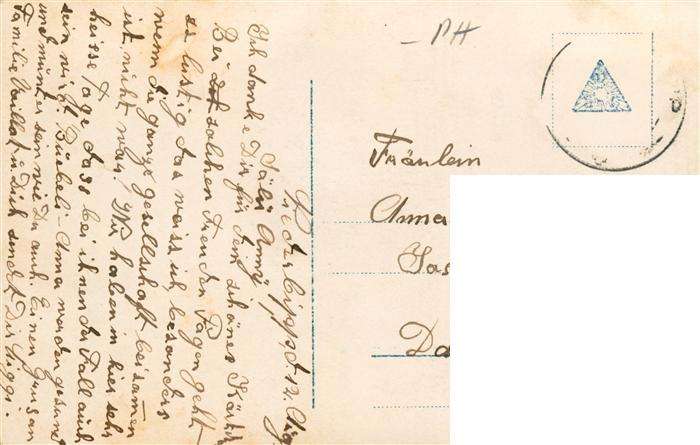 PH
Fräulein
Anna
Niederbipp, d. 12. Aug
Salü Anny,
Ich danke Dir für dein schönes Kärtli
Bei solchen Tagen geht
es lustig das weiss ich, besonders
wenn die ganze Gesellschaft beisamen
ist, nicht war! Wir haben hier sehr
heisse tage, dass bei ihnen der Fall auch
sein wird. Buebeli - Anna werden gesund
und munter sein wie Du auch. Einen Gruss an
Familie u. Dich sendet Dir